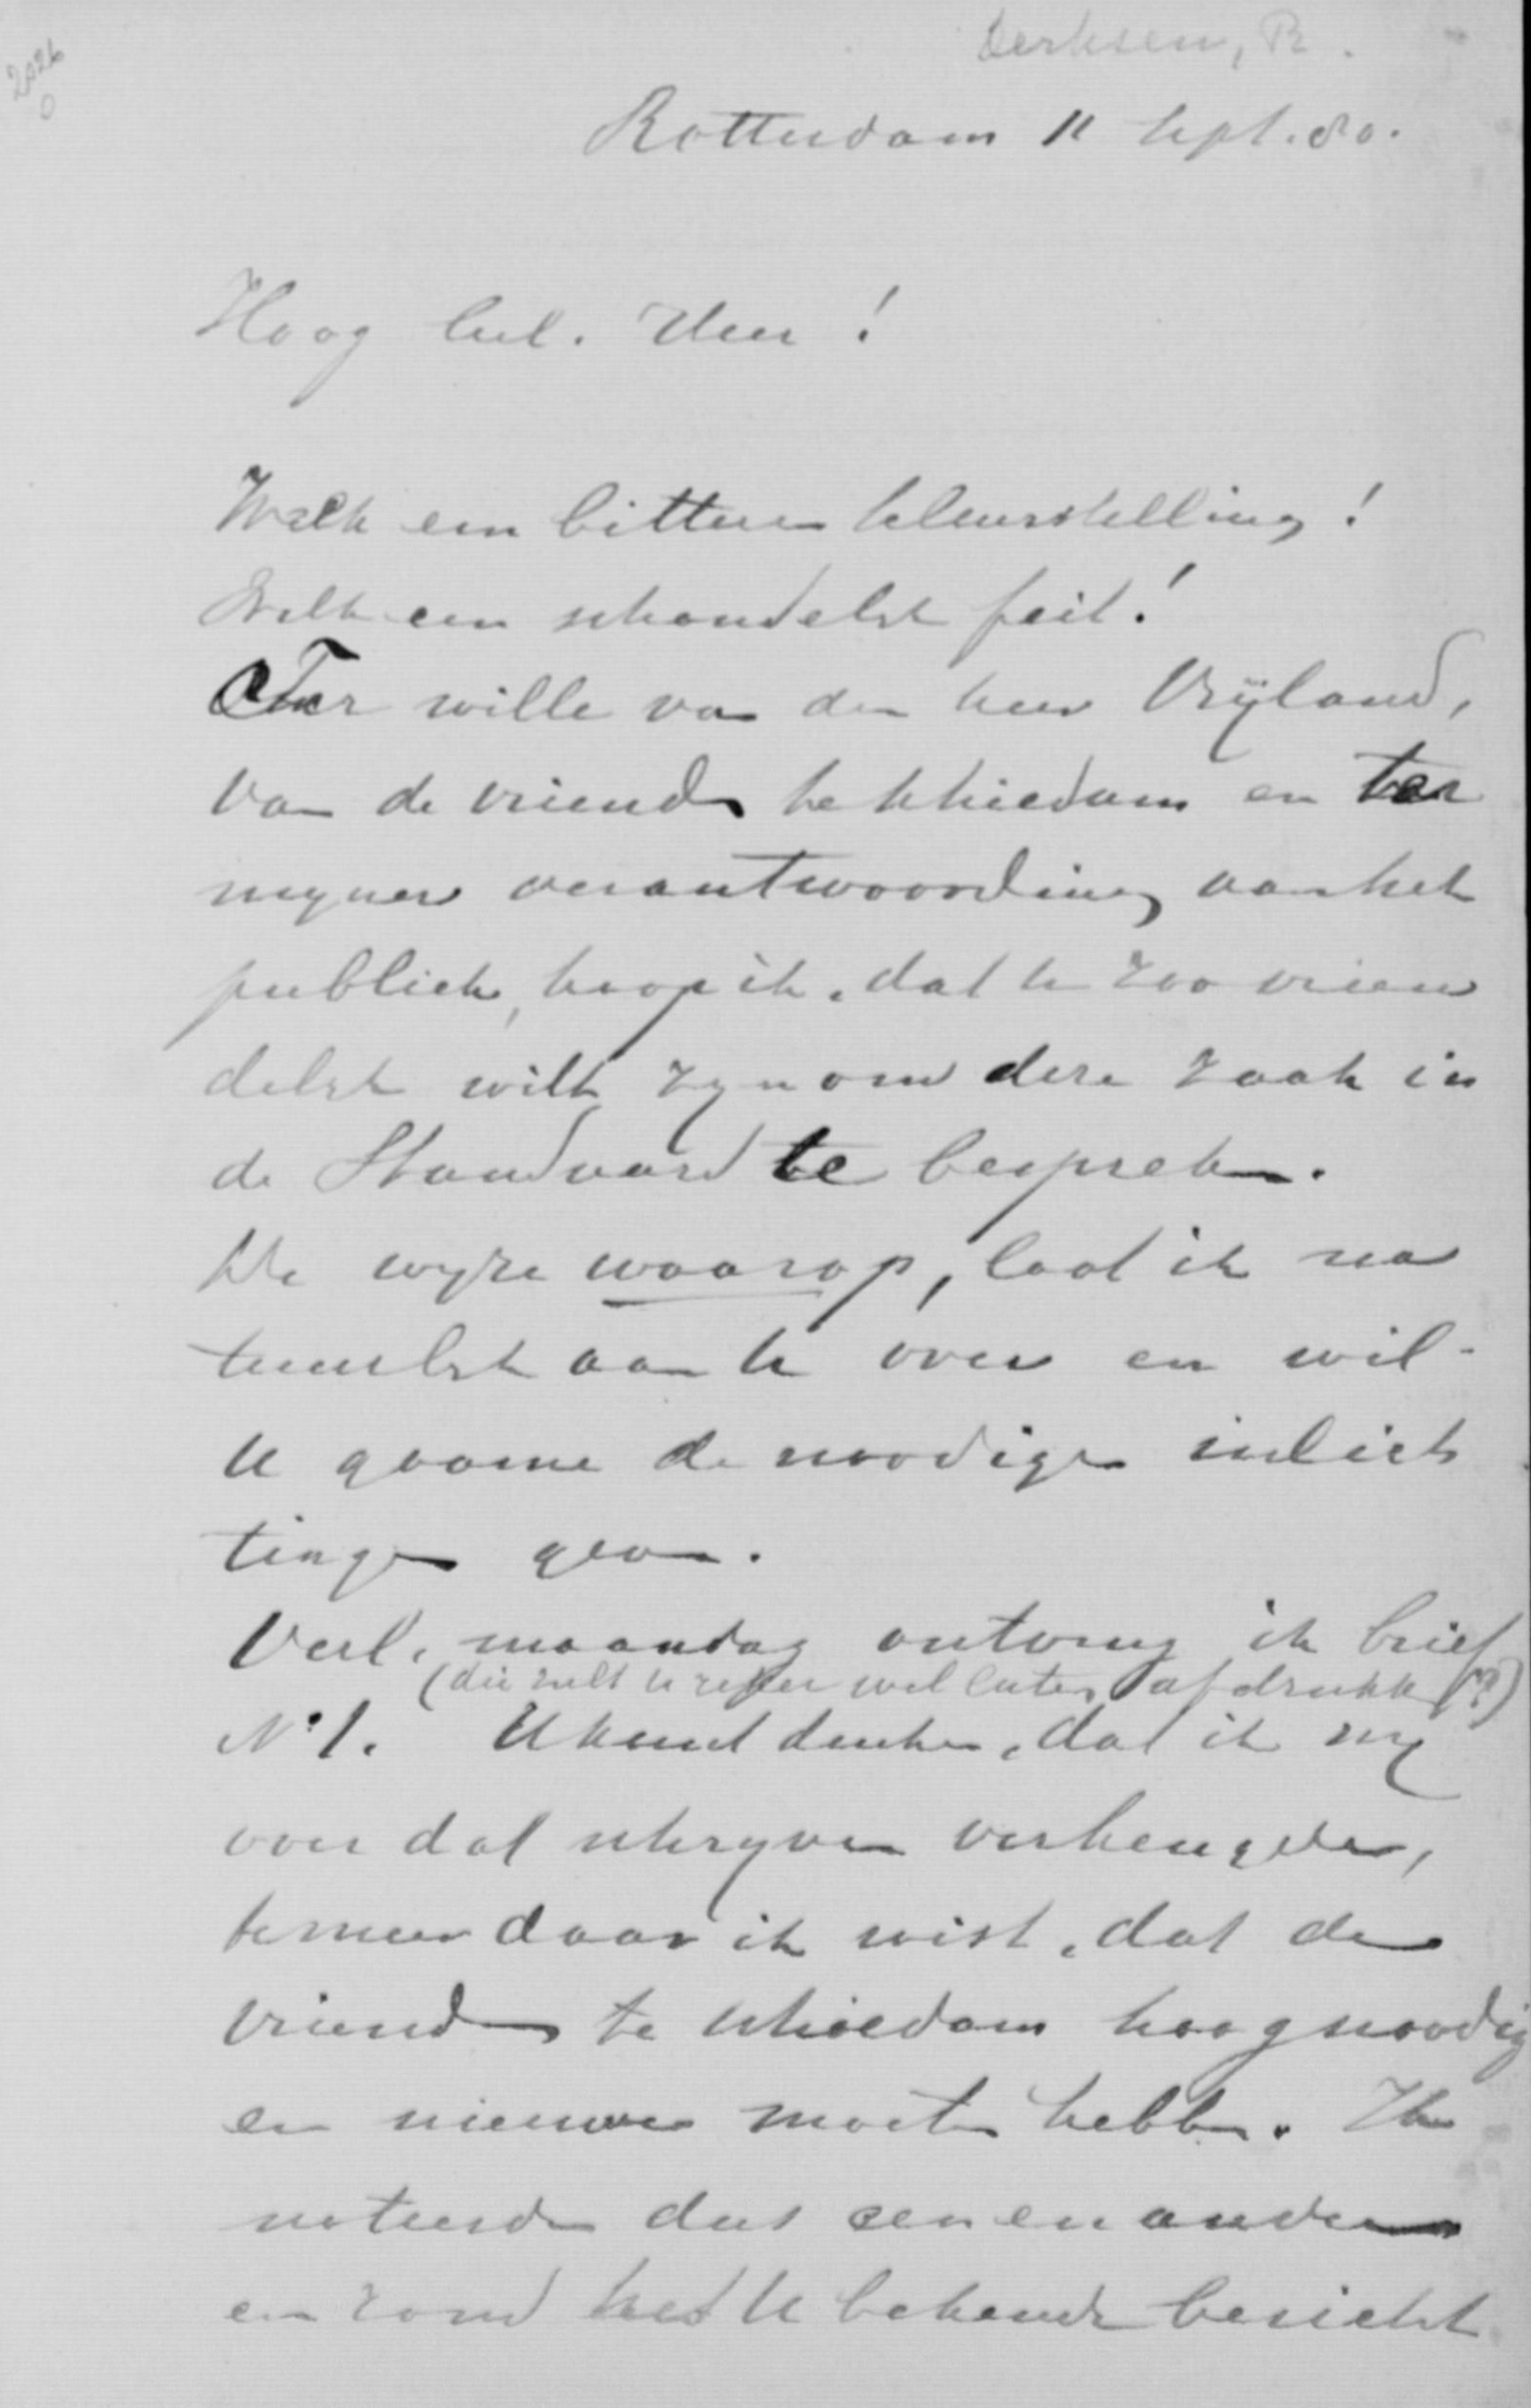 Derksen, R.
2026
0
Rotterdam 11 Sept. 80.
Hoog Gel. Heer!
Welk een bittere teleurstelling!
Welk een schandelijk feit!
Ter wille van den heer Vrijland,
van de vrienden te Schiedam en ter
mijner verantwoording aan het
publiek, hoop ik, dat U zoo vrien
delijk wilt zijn om deze zaak in
de Standaard te bespreken.
De wijze waarop, laat ik na
tuurlijk aan U over en wil
U gaarne de noodige inlich
tingen geven.
Verl. maandag ontving ik brief
(die zult U zeker wel laten afdrukken?)
No 1. U kunt denken, dat ik mij
over dat schrijven verheugde,
temeer daar ik wist, dat de
vrienden te Schiedam hoognoodig
een nieuwe moeten hebben. Ik
noteerde dus een en ander
en zond het U bekende bericht